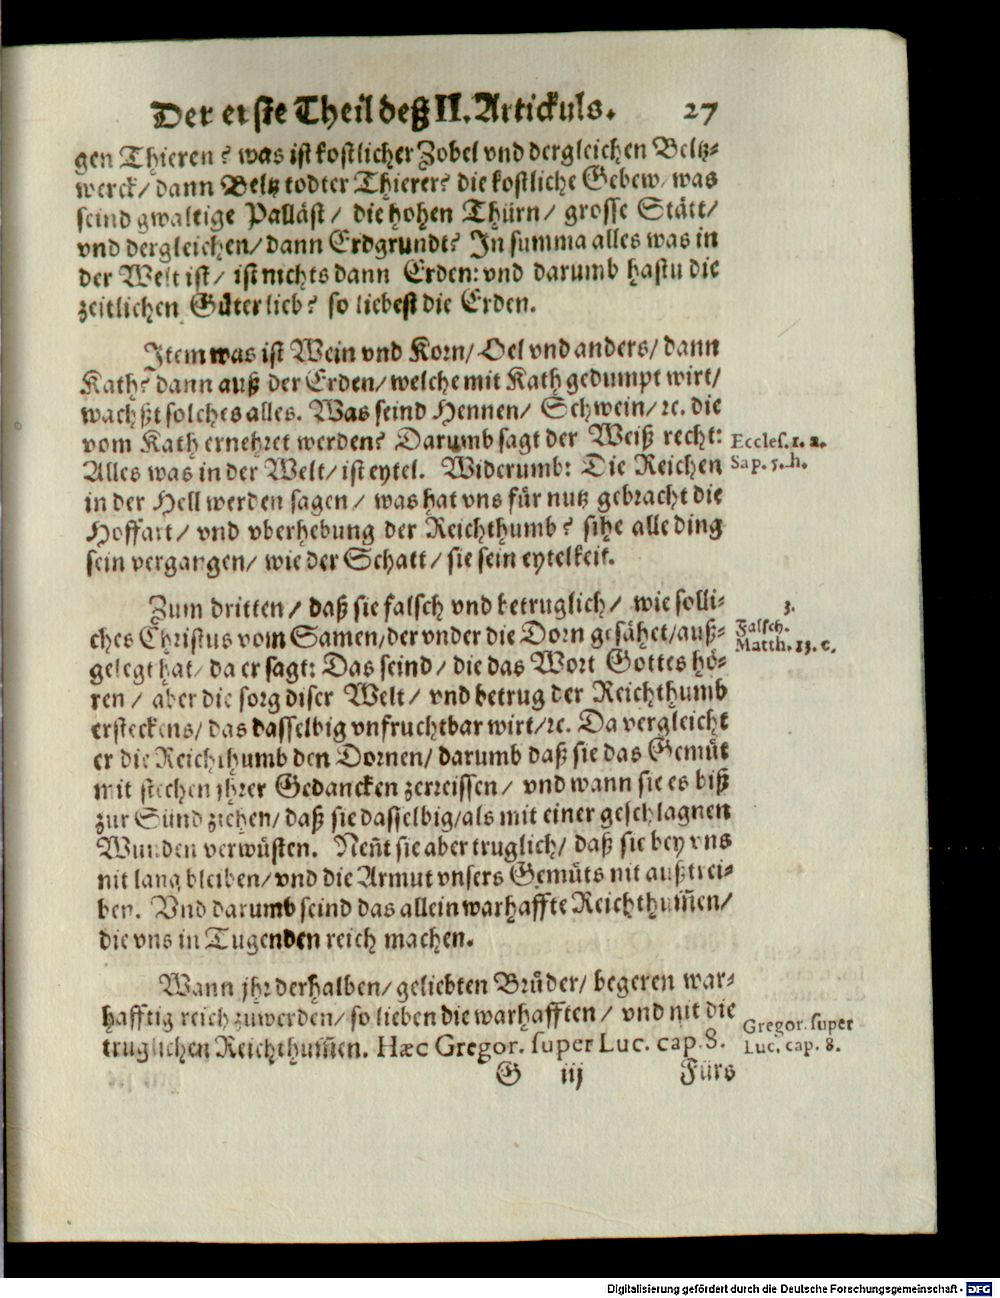 Der erste Theil deß II. Artickuls. 27
gen Thieren? was ist kostlicher Zobel vnd dergleichen Beltz-
werck/ dann Beltz todter Thierer? die kostliche Gebew/ was
seind gwaltige Palläst/ die hohen Thürn/ grosse Stätt/
vnd dergleichen/ dann Erdgrundt? In summa alles was in
der Welt ist/ ist nichts dann Erden: vnd darumb hastu die
zeitlichen Güter lieb? so liebest die Erden.
Item was ist Wein vnd Korn/ Oel vnd anders/ dann
Kath? dann auß der Erden/ welche mit Kath gedumpt wirt/
wachßt solches alles. Was seind Hennen/ Schwein/ ꝛc. die
vom Kath ernehret werden? Darumb sagt der Weiß recht: Eccles. 1. 2.
Alles was in der Welt/ ist eytel. Widerumb: Die Reichen Sap. 5. h.
in der Hell werden sagen/ was hat vns für nutz gebracht die
Hoffart/ vnd vberhebung der Reichthumb? sihe alle ding
sein vergangen/ wie der Schatt/ sie sein eytelkeit.
Zum dritten/ daß sie falsch vnd betruglich/ wie solli- 3.
ches Christus vom Samen/ der vnder die Dorn gesähet/ auß- Falsch.
gelegt hat/ da er sagt: Das seind/ die das Wort Gottes hö- Matth. 13. c.
ren/ aber die sorg diser Welt/ vnd betrug der Reichthumb
ersteckens/ das dasselbig vnfruchtbar wirt/ ꝛc. Da vergleicht
er die Reichthumb den Dornen/ darumb daß sie das Gemüt
mit stechen jhrer Gedancken zerreissen/ vnd wann sie es biß
zur Sünd ziehen/ daß sie dasselbig/ als mit einer geschlagnen
Wunden verwüsten. Neñt sie aber truglich/ daß sie bey vns
nit lang bleiben/ vnd die Armut vnsers Gemüts nit außtrei-
ben. Vnd darumb seind das allein warhaffte Reichthum̃en/
die vns in Tugenden reich machen.
Wann jhr derhalben/ geliebten Brüder/ begeren war-
hafftig reich zuwerden/ so lieben die warhafften/ vnd nit die Gregor. super
truglichen Reichthum̃en. Hæc Gregor. super Luc. cap. 8. Luc. cap. 8.
G iij Fürs
Digitalisierung gefördert durch die Deutsche Forschungsgemeinschaft - DFG